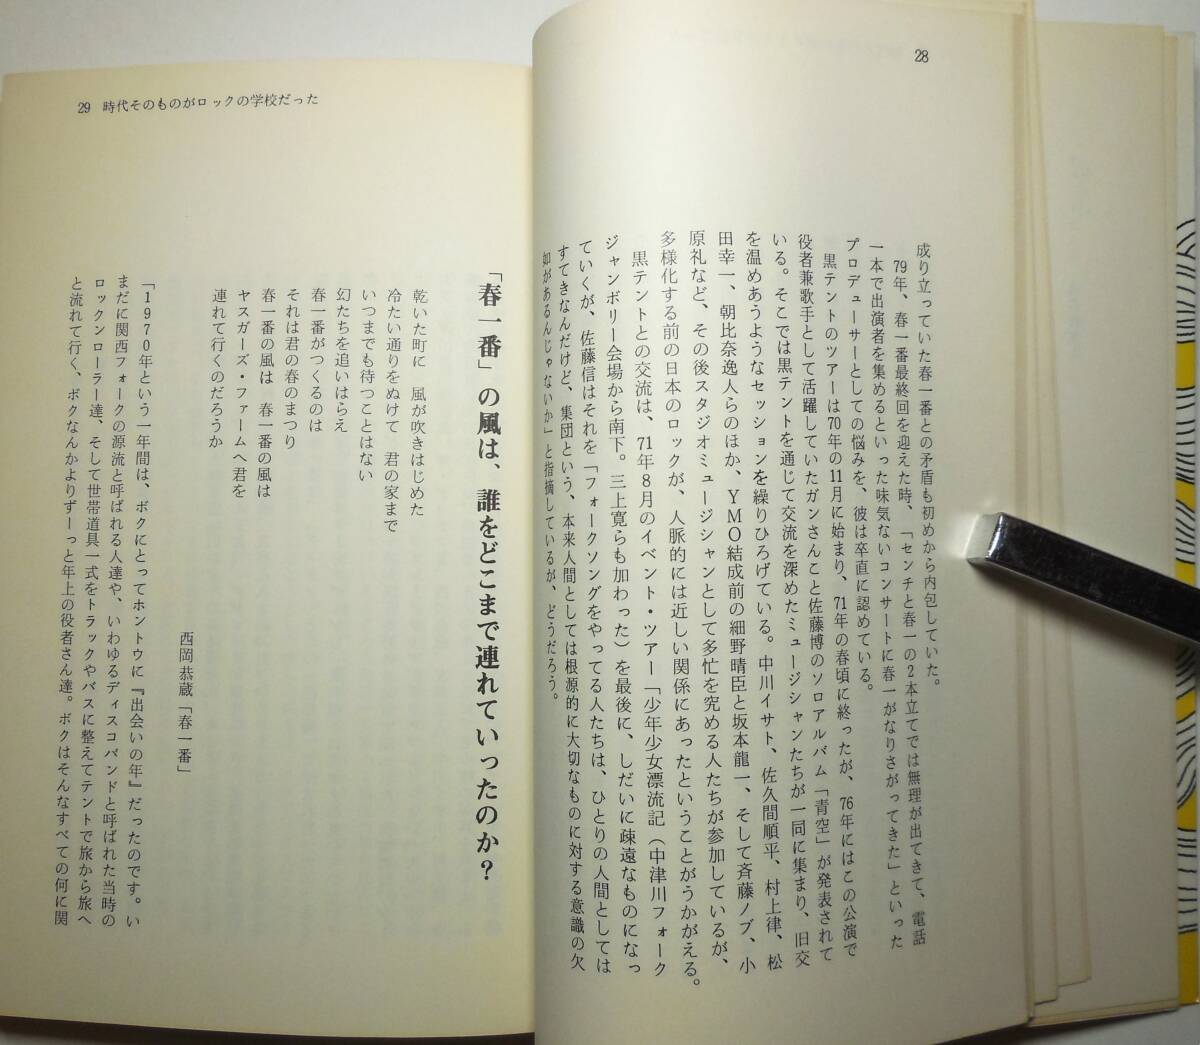 28
成り立っていた春一番との矛盾も初めから内包していた。
79年、春一番最終回を迎えた時、「センチと春一の2本立てでは無理が出てきて、電話
一本で出演者を集めるといった味気ないコンサートに春一がなりさがってきた」といった
プロデューサーとしての悩みを、彼は卒直に認めている。
黒テントのツアーは70年の11月に始まり、71年の春頃に終ったが、76年にはこの公演で
役者兼歌手として活躍していたガンさんこと佐藤博のソロアルバム「青空」が発表されて
いる。そこでは黒テントを通じて交流を深めたミュージシャンたちが一同に集まり、旧交
を温めあうようなセッションを繰りひろげている。中川イサト、佐久間順平、村上律、松
田幸一、朝比奈逸人らのほか、YMO結成前の細野晴臣と坂本龍一、そして斉藤ノブ、小
原礼など、その後スタジオミュージシャンとして多忙を究める人たちが参加しているが、
多様化する前の日本のロックが、人脈的には近しい関係にあったということがうかがえる。
黒テントとの交流は、71年8月のイベント・ツアー「少年少女漂流記(中津川フォーク
ジャンボリー会場から南下。三上寛らも加わった)を最後に、しだいに疎遠なものになっ
ていくが、佐藤信はそれを「フォークソングをやってる人たちは、ひとりの人間としては
すてきなんだけど、集団という、本来人間としては根源的に大切なものに対する意識の欠
如があるんじゃないか」と指摘しているが、どうだろう。
29 時代そのものがロックの学校だった
「春一番」の風は、誰をどこまで連れていったのか?
乾いた町に 風が吹きはじめた
冷たい通りをぬけて 君の家まで
いつまでも待つことはない
幻たちを追いはらえ
春一番がつくるのは
それは君の春のまつり
春一番の風は 春一番の風は
ヤスガーズ・ファームへ君を
連れて行くのだろうか
西岡恭蔵「春一番」
「1970年という一年間は、ボクにとってホントウに『出会いの年』だったのです。い
まだに関西フォークの源流と呼ばれる人達や、いわゆるディスコバンドと呼ばれた当時の
ロックンローラー達、そして世帯道具一式をトラックやバスに整えてテントで旅から旅へ
と流れて行く、ボクなんかよりずーっと年上の役者さん達。ボクはそんなすべての何に関